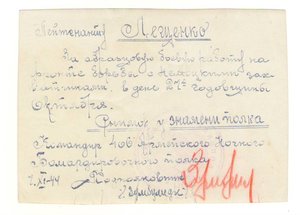 Лейтенанту Лещенко
За образцовую боевую работу на
фронте борьбы с немецкими зах-
ватчиками, в день 27й годовщины
Октября.
Снимок у знамени полка
Командир 406 армейского Ночного
Бомбардировочного полка
7.XI-44 Подполковник